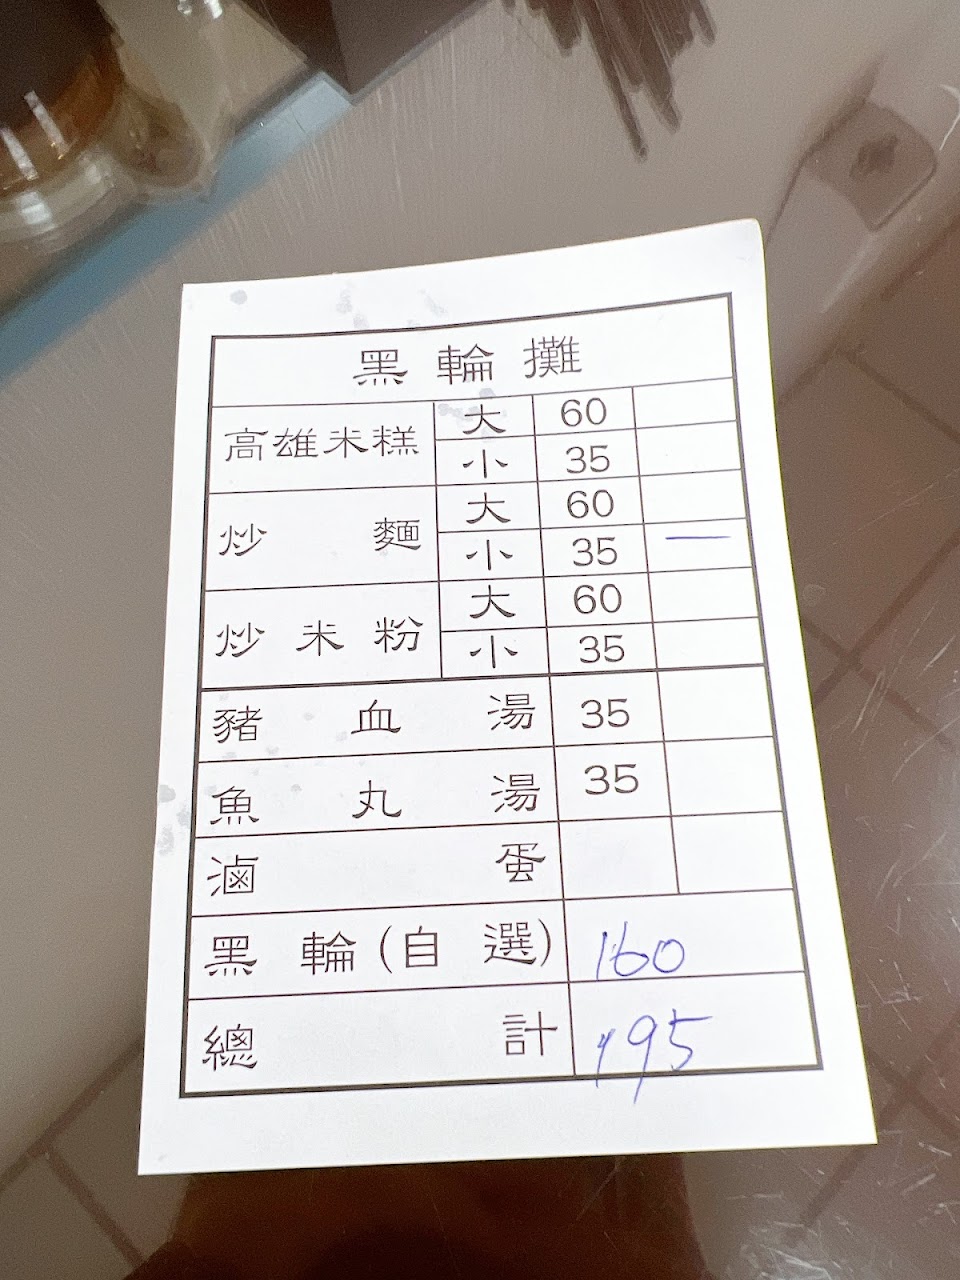 黑輪攤
高雄米糕 大 60
小 35
炒麵 大 60
小 35 一
炒米粉 大 60
小 35
豬血湯 35
魚丸湯 35
滷蛋
黑輪(自選) 160
總計 195